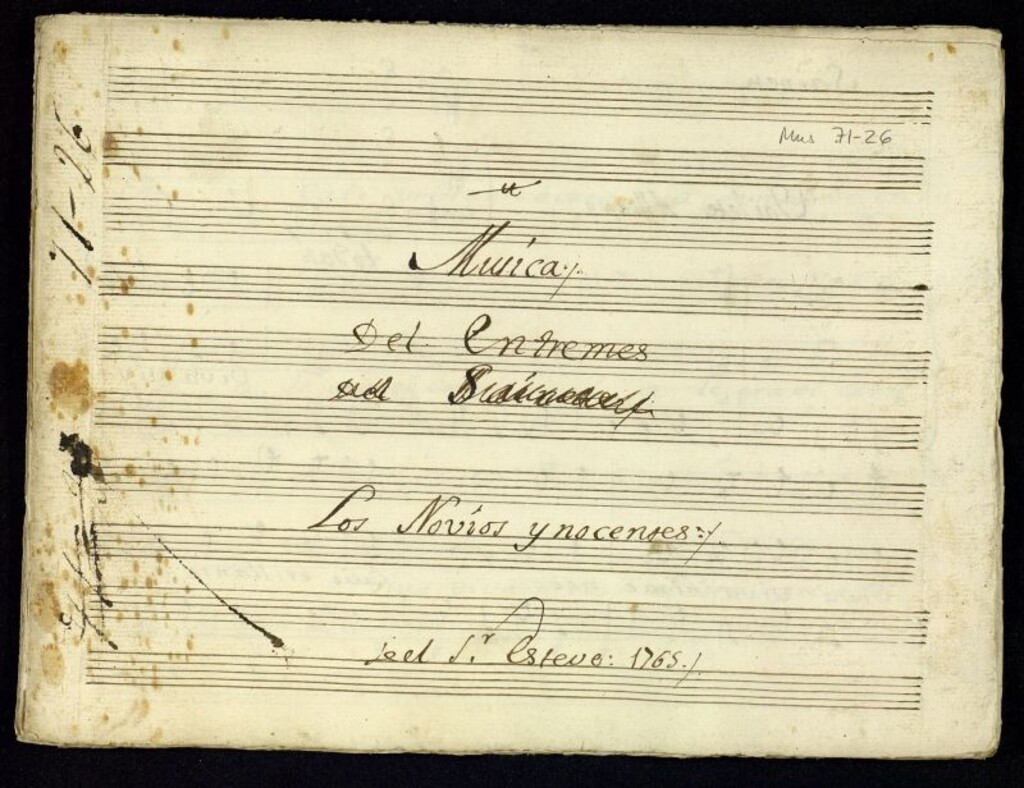 Mus 71-26
71-26
Musica
Del Entremes
Los Novios ynocentes
del Sr. Esteve: 1765